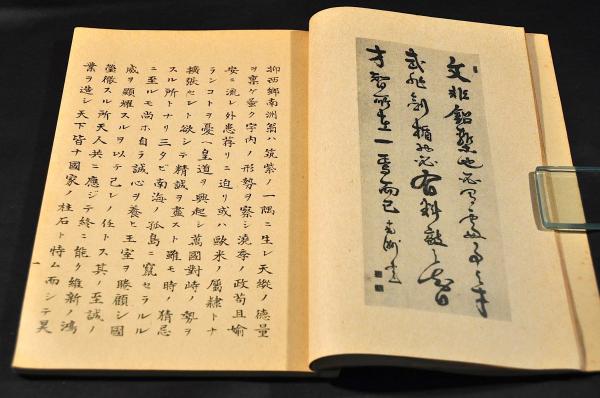 文非鉛槧也必有處事之才
武非劍楯也必有料敵之智
才智所在一焉而已 南洲書
抑西鄕南洲翁ハ筑紫ノ一隅ニ生レ天縱ノ德量
ヲ稟ケ蚤ク宇內ノ形勢ヲ察シ澆季ノ政苟且媮
安ニ流レ外患荐リニ迫リ或ハ歐米ノ屬隷トナ
ランコトヲ憂ヘ皇道ヲ興起シ萬國對峙ノ勢ヲ
擴張セント欲シテ精誠ヲ盡スト雖モ時ノ猜忌
スル所トナリ三タビ南海ノ孤島ニ竄セラルル
ニ至ルモ尚ホ自ラ誠心ヲ養ヒ王室ヲ睠顧シ國
威ヲ顯耀スルヲ以テ己レノ任トス其ノ至誠ノ
瑩徹スル所天人共ニ應ジテ終ニ能ク維新ノ鴻
業ヲ造シ天下皆ナ國家ノ柱石ト恃ム而シテ昊